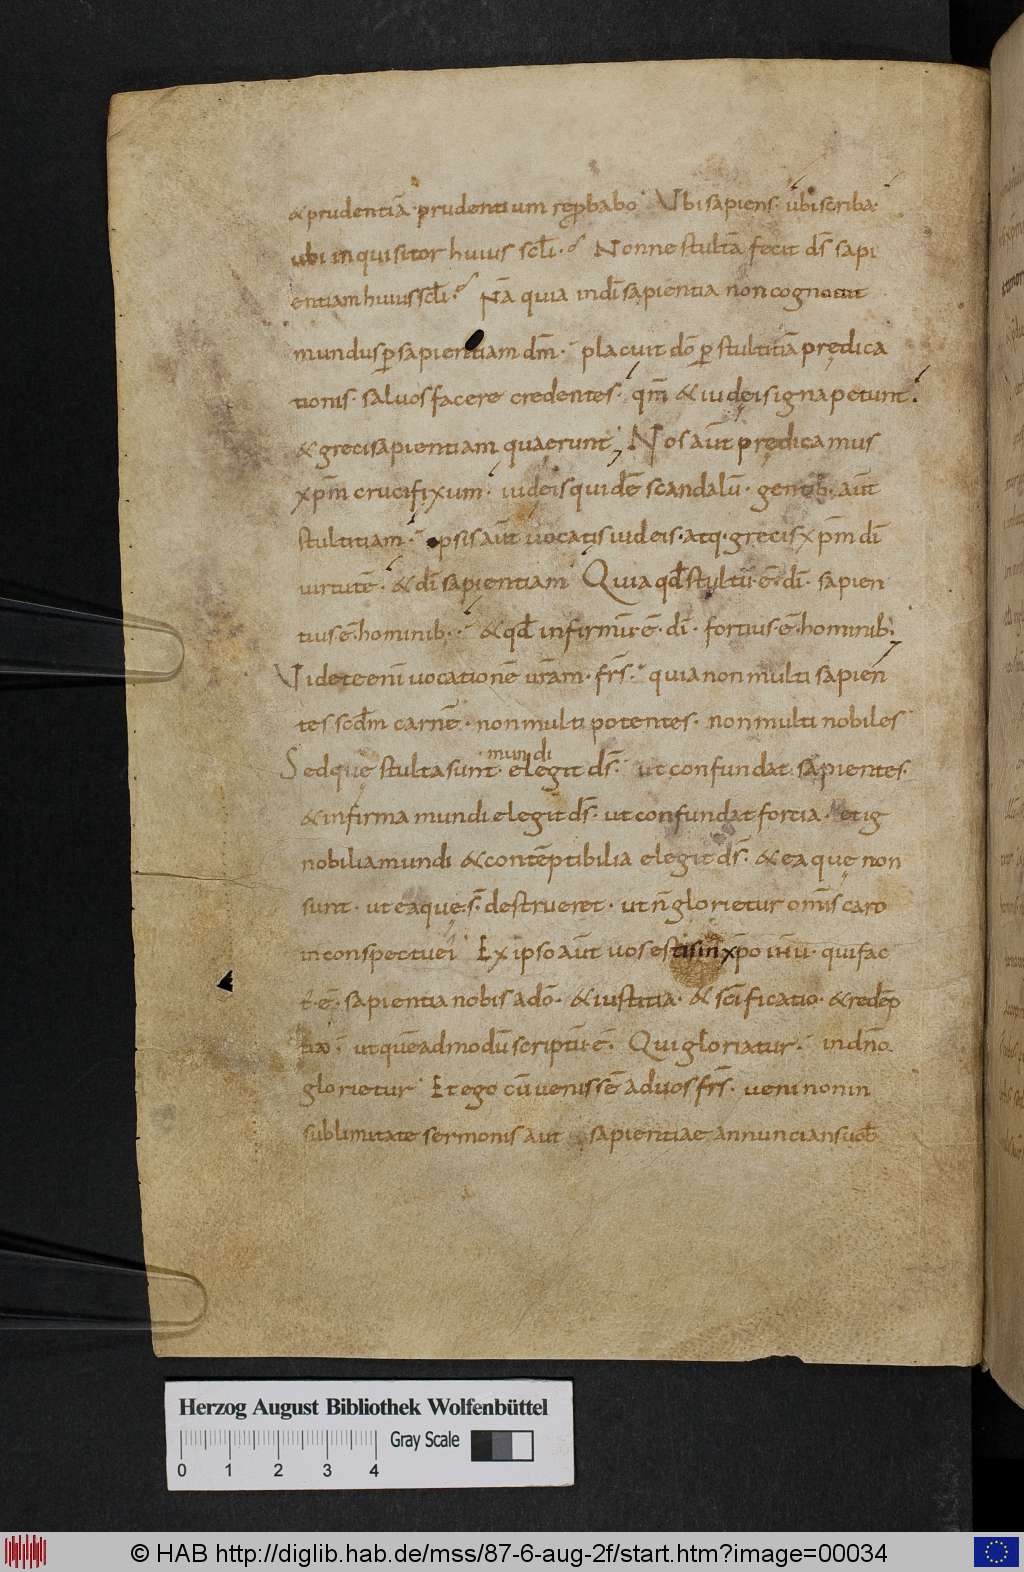 & prudentiā prudentium rep̱babo Ubi sapiens· ubi scriba·
ubi inquisitor huius scl̄i· Nonne stultā fecit dS̄ sapi
entiam huius scl̄i· Nā quia in dī sapientia non cognouit
mundus ꝑ sapientiam dm̄· placuit dō ꝑ stultitiā prędica
tionis· saluos facere credentes· qm̄ & iudei signa petunt·
& greci sapientiam quaerunt Nos aūt prędicamus
xp̄m crucifixum· iudeis quidē scandalū· gentib· aūt
stultitiam· ipsis aūt uocatis iudeis· atq· grecis xp̄m dī
uirtutē· & dī sapientiam Quia qđ stultū· ē· dī· sapien
tius ē hominib· & qđ infirmū· ē· dī· fortius ē hominib·
Uidete enī uocationē ur̄am· fr̄s· quia non multi sapien
tes scđm carnē· non multi potentes· non multi nobiles
mundi
Sed quę stulta sunt· elegit dS̄· ut confundat sapientes·
& infirma mundi elegit dS̄· ut confundat fortia· et ig
nobilia mundi & contēptibilia elegit dS̄· & ea quę non
sunt· ut ea quę· s̄· destrueret· ut n̄ glorietur om̄is caro
in conspectu ei Ex ipso aūt uos estis in xp̄o ihū· qui fac
t· ē· sapientia nobis a dō· & iustitia· & sc̄ificatio· & redēp
tio· ut quēadmodū scriptū· ē· Qui gloriatur· in dn̄o
glorietur Et ego cū uenissē ad uos fr̄s· ueni non in
sublimitate sermonis aut sapientiae annuncians uob̄
Herzog August Bibliothek Wolfenbüttel
Gray Scale
0 1 2 3 4
© HAB http://diglib.hab.de/mss/87-6-aug-2f/start.htm?image=00034